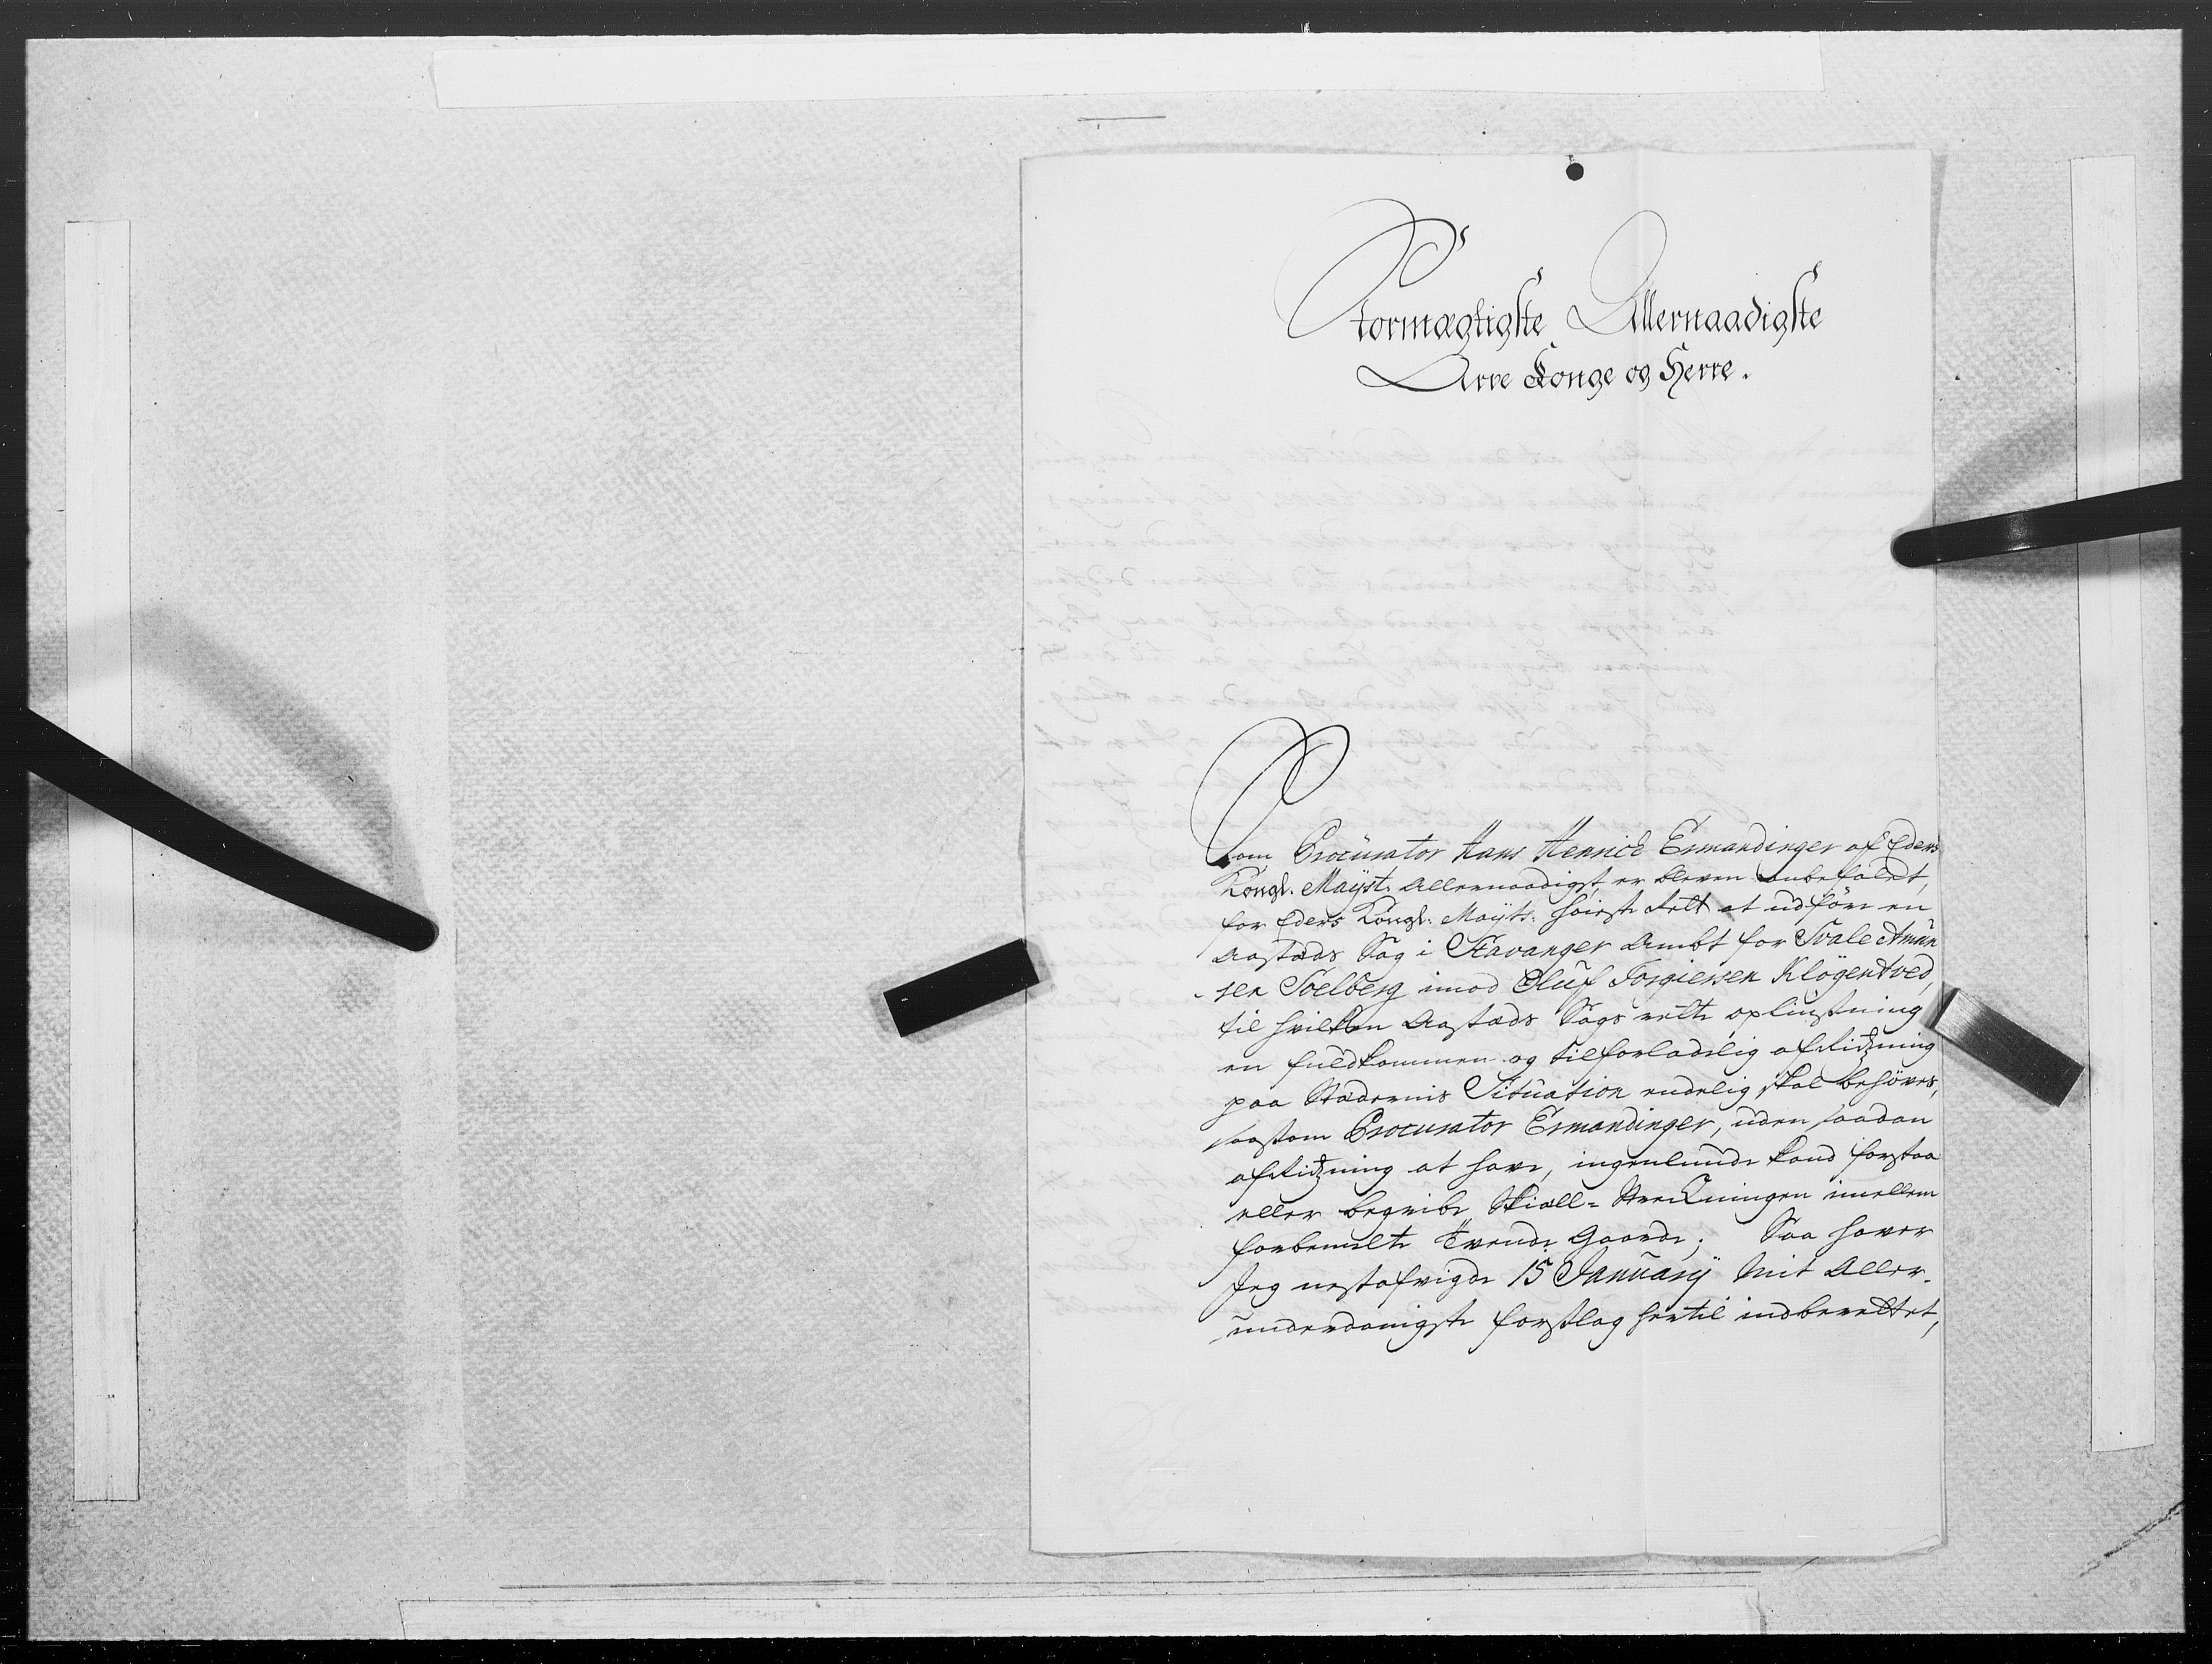 Stormægtigste Allernaadigste
Arve Konge og Herre.
Som Procurator Hans Henrich Ermandinger af Eders
Kongl. Mayst. Allernaadigst er bleven anbefalet,
for Eders Kongl: Mayts: høieste Rett at udføre en
Aastæds Sag i Stavanger Ambt for Svale Amun
sen Soelberg imod Oluf Torgiersen Kløgetved,
til hvilken Aastæds Sags rette oplysning
en fuldkommen og tilforladelig afRidzning
paa Stædernis Situation endelig skal behøves,
saasom Procurator Ermandinger, uden saadan
afRidzning at have, ingenlunde kand forstaa
eller begribe Skiell-Streckningen imellem
forbemelte Tvende Gaarde; Saa haver
Jeg nestafvigde 15 January Mit Aller-
underdanigste forslag hertil indberettet,